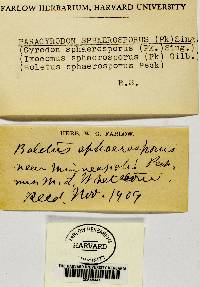 FARLOW HERBARIUM, HARVARD UNIVERSITY
PARAGYRODON SPHAEROSPORUS (Pk)Sing.
(Gyrodon sphaerosporus (Pk.)Sing.)
(Ixocomus sphaerosporus (Pk) Gilb.)
(Boletus sphaerosporus Peck)
R.S.
HERB. W. G. FARLOW.
Boletus sphaerosporus
near Minneapolis
Miss M. S. Whetstone
Recd. Nov. 1909
FARLOW HERBARIUM
HARVARD